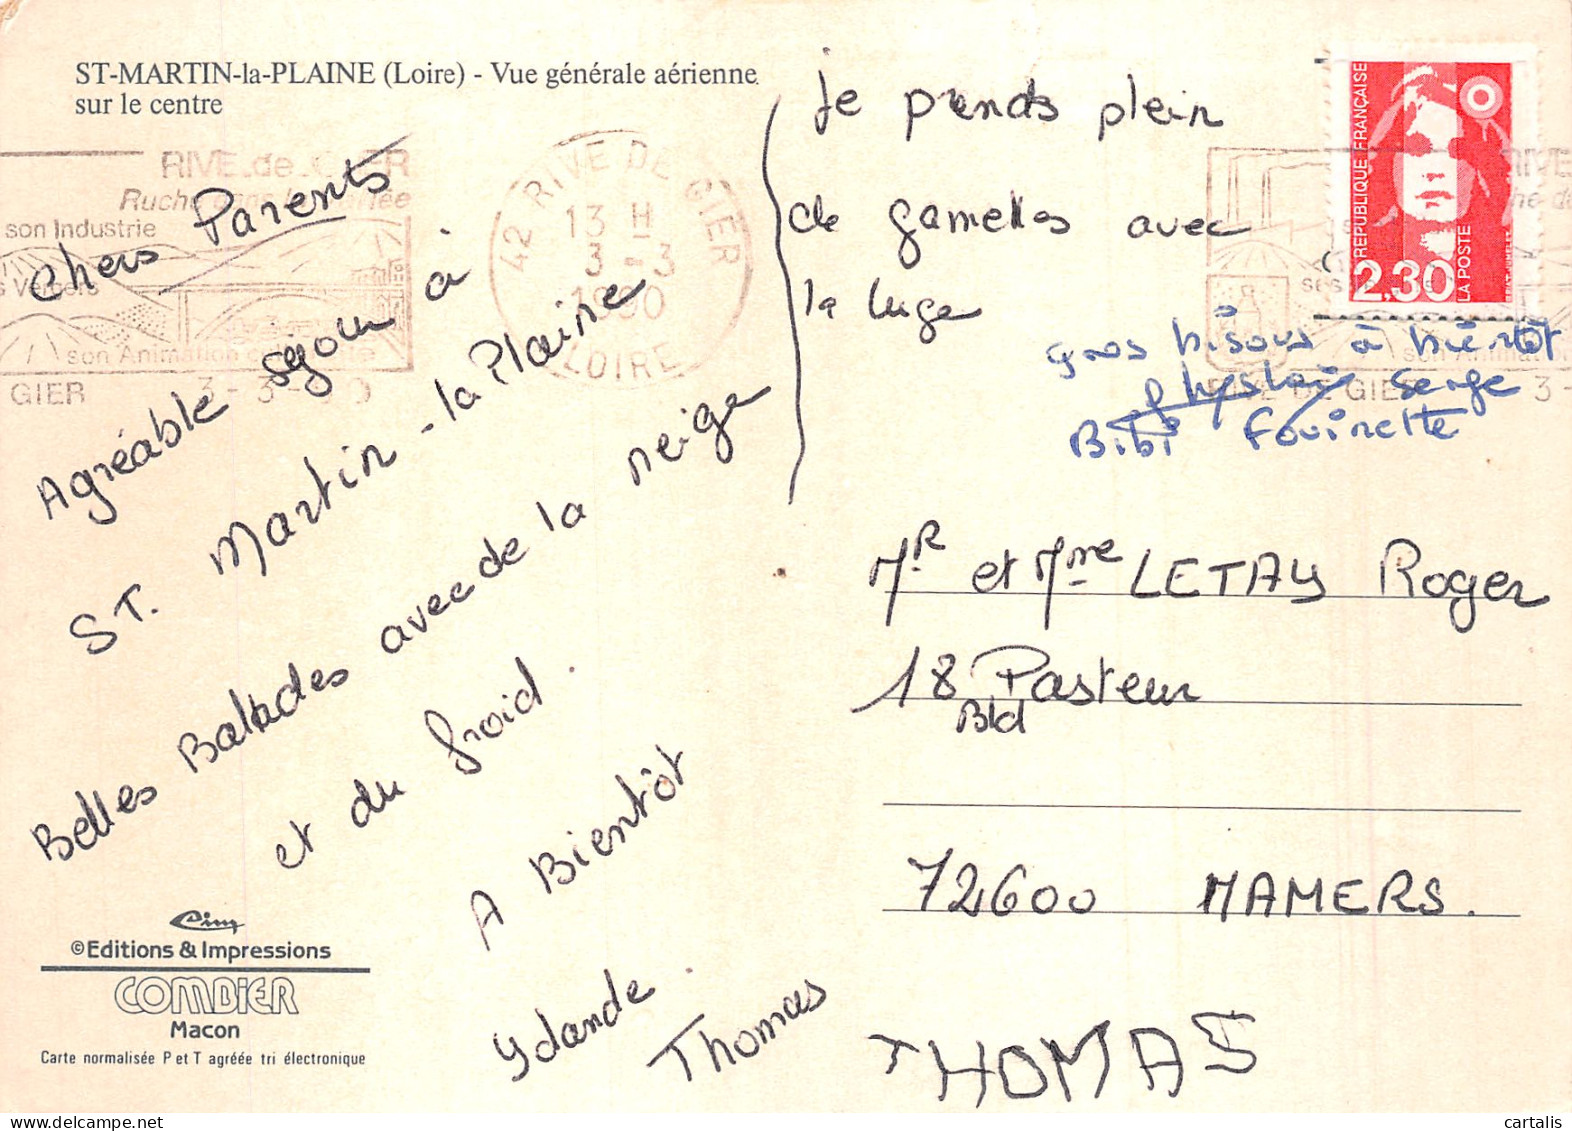 ST-MARTIN-la-PLAINE (Loire) - Vue générale aérienne
sur le centre
RIVE de GIER
son Industrie
son Animation
GIER 3-3-90
42 RIVE DE GIER
13 H
3-3
1990
LOIRE
Chers Parents
Agréable séjour à
ST. Martin-la Plaine
Belles Ballades avec de la neige
et du froid.
A Bientôt
Ydande.
Thomas
je prends plein
de gamelles avec
la luge
gros bisous à bientôt
Serge
Bibi Fouinette
REPUBLIQUE FRANÇAISE
2,30
LA POSTE
RIVE DE GIER 3-
son Animation
MR et Mme LETAY Roger
18 Pasteur
Bld
72600 MAMERS.
THOMAS
Cim
©Editions & Impressions
COMBIER
Macon
Carte normalisée P et T agréée tri électronique
cartalis